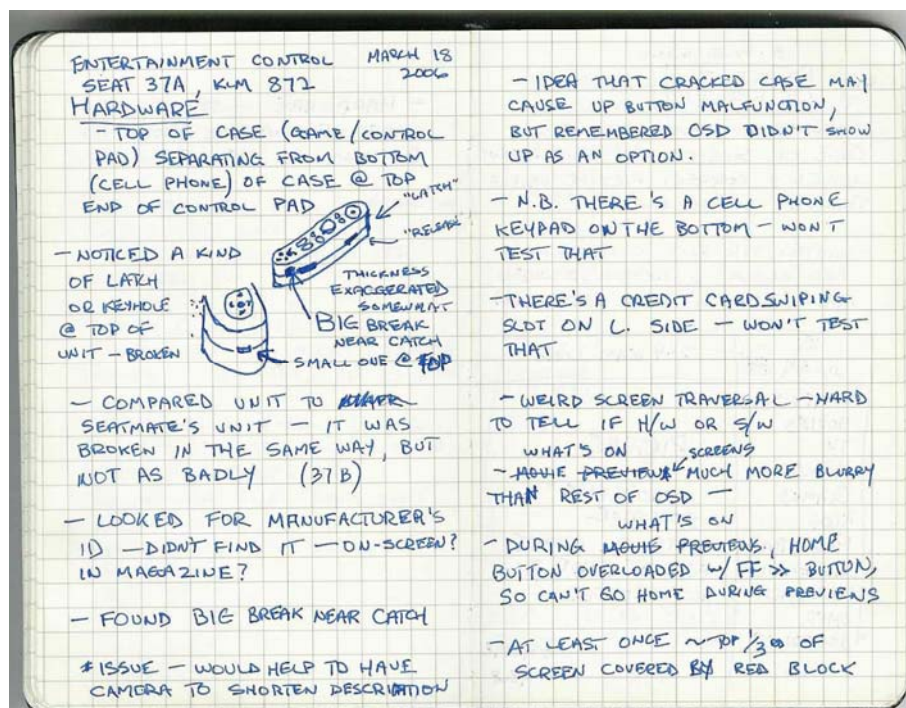 ENTERTAINMENT CONTROL MARCH 18
2006
SEAT 37A, KLM 872
HARDWARE
- TOP OF CASE (GAME/CONTROL
PAD) SEPARATING FROM BOTTOM
(CELL PHONE) OF CASE @ TOP
END OF CONTROL PAD
"LATCH"
"RELEASE"
- NOTICED A KIND
OF LATCH
OR KEYHOLE
@ TOP OF
UNIT - BROKEN
THICKNESS
EXAGGERATED
SOMEWHAT
BIG BREAK
NEAR CATCH
SMALL ONE @ TOP
- COMPARED UNIT TO
SEATMATE'S UNIT - IT WAS
BROKEN IN THE SAME WAY, BUT
NOT AS BADLY (37B)
- LOOKED FOR MANUFACTURER'S
ID - DIDN'T FIND IT - ON-SCREEN?
IN MAGAZINE?
- FOUND BIG BREAK NEAR CATCH
* ISSUE - WOULD HELP TO HAVE
CAMERA TO SHORTEN DESCRIPTION
- IDEA THAT CRACKED CASE MAY
CAUSE UP BUTTON MALFUNCTION,
BUT REMEMBERED OSD DIDN'T SHOW
UP AS AN OPTION.
- N.B. THERE'S A CELL PHONE
KEYPAD ON THE BOTTOM - WON'T
TEST THAT
- THERE'S A CREDIT CARD SWIPING
SLOT ON L. SIDE - WON'T TEST
THAT
- WEIRD SCREEN TRAVERSAL - HARD
TO TELL IF H/W OR S/W
WHAT'S ON SCREENS
- MOVIE PREVIEWS MUCH MORE BLURRY
THAN REST OF OSD -
WHAT'S ON
- DURING MOVIE PREVIEWS, HOME
BUTTON OVERLOADED w/ FF >> BUTTON,
SO CAN'T GO HOME DURING PREVIEWS
- AT LEAST ONCE ~ TOP 1/3 OF
SCREEN COVERED BY RED BLOCK